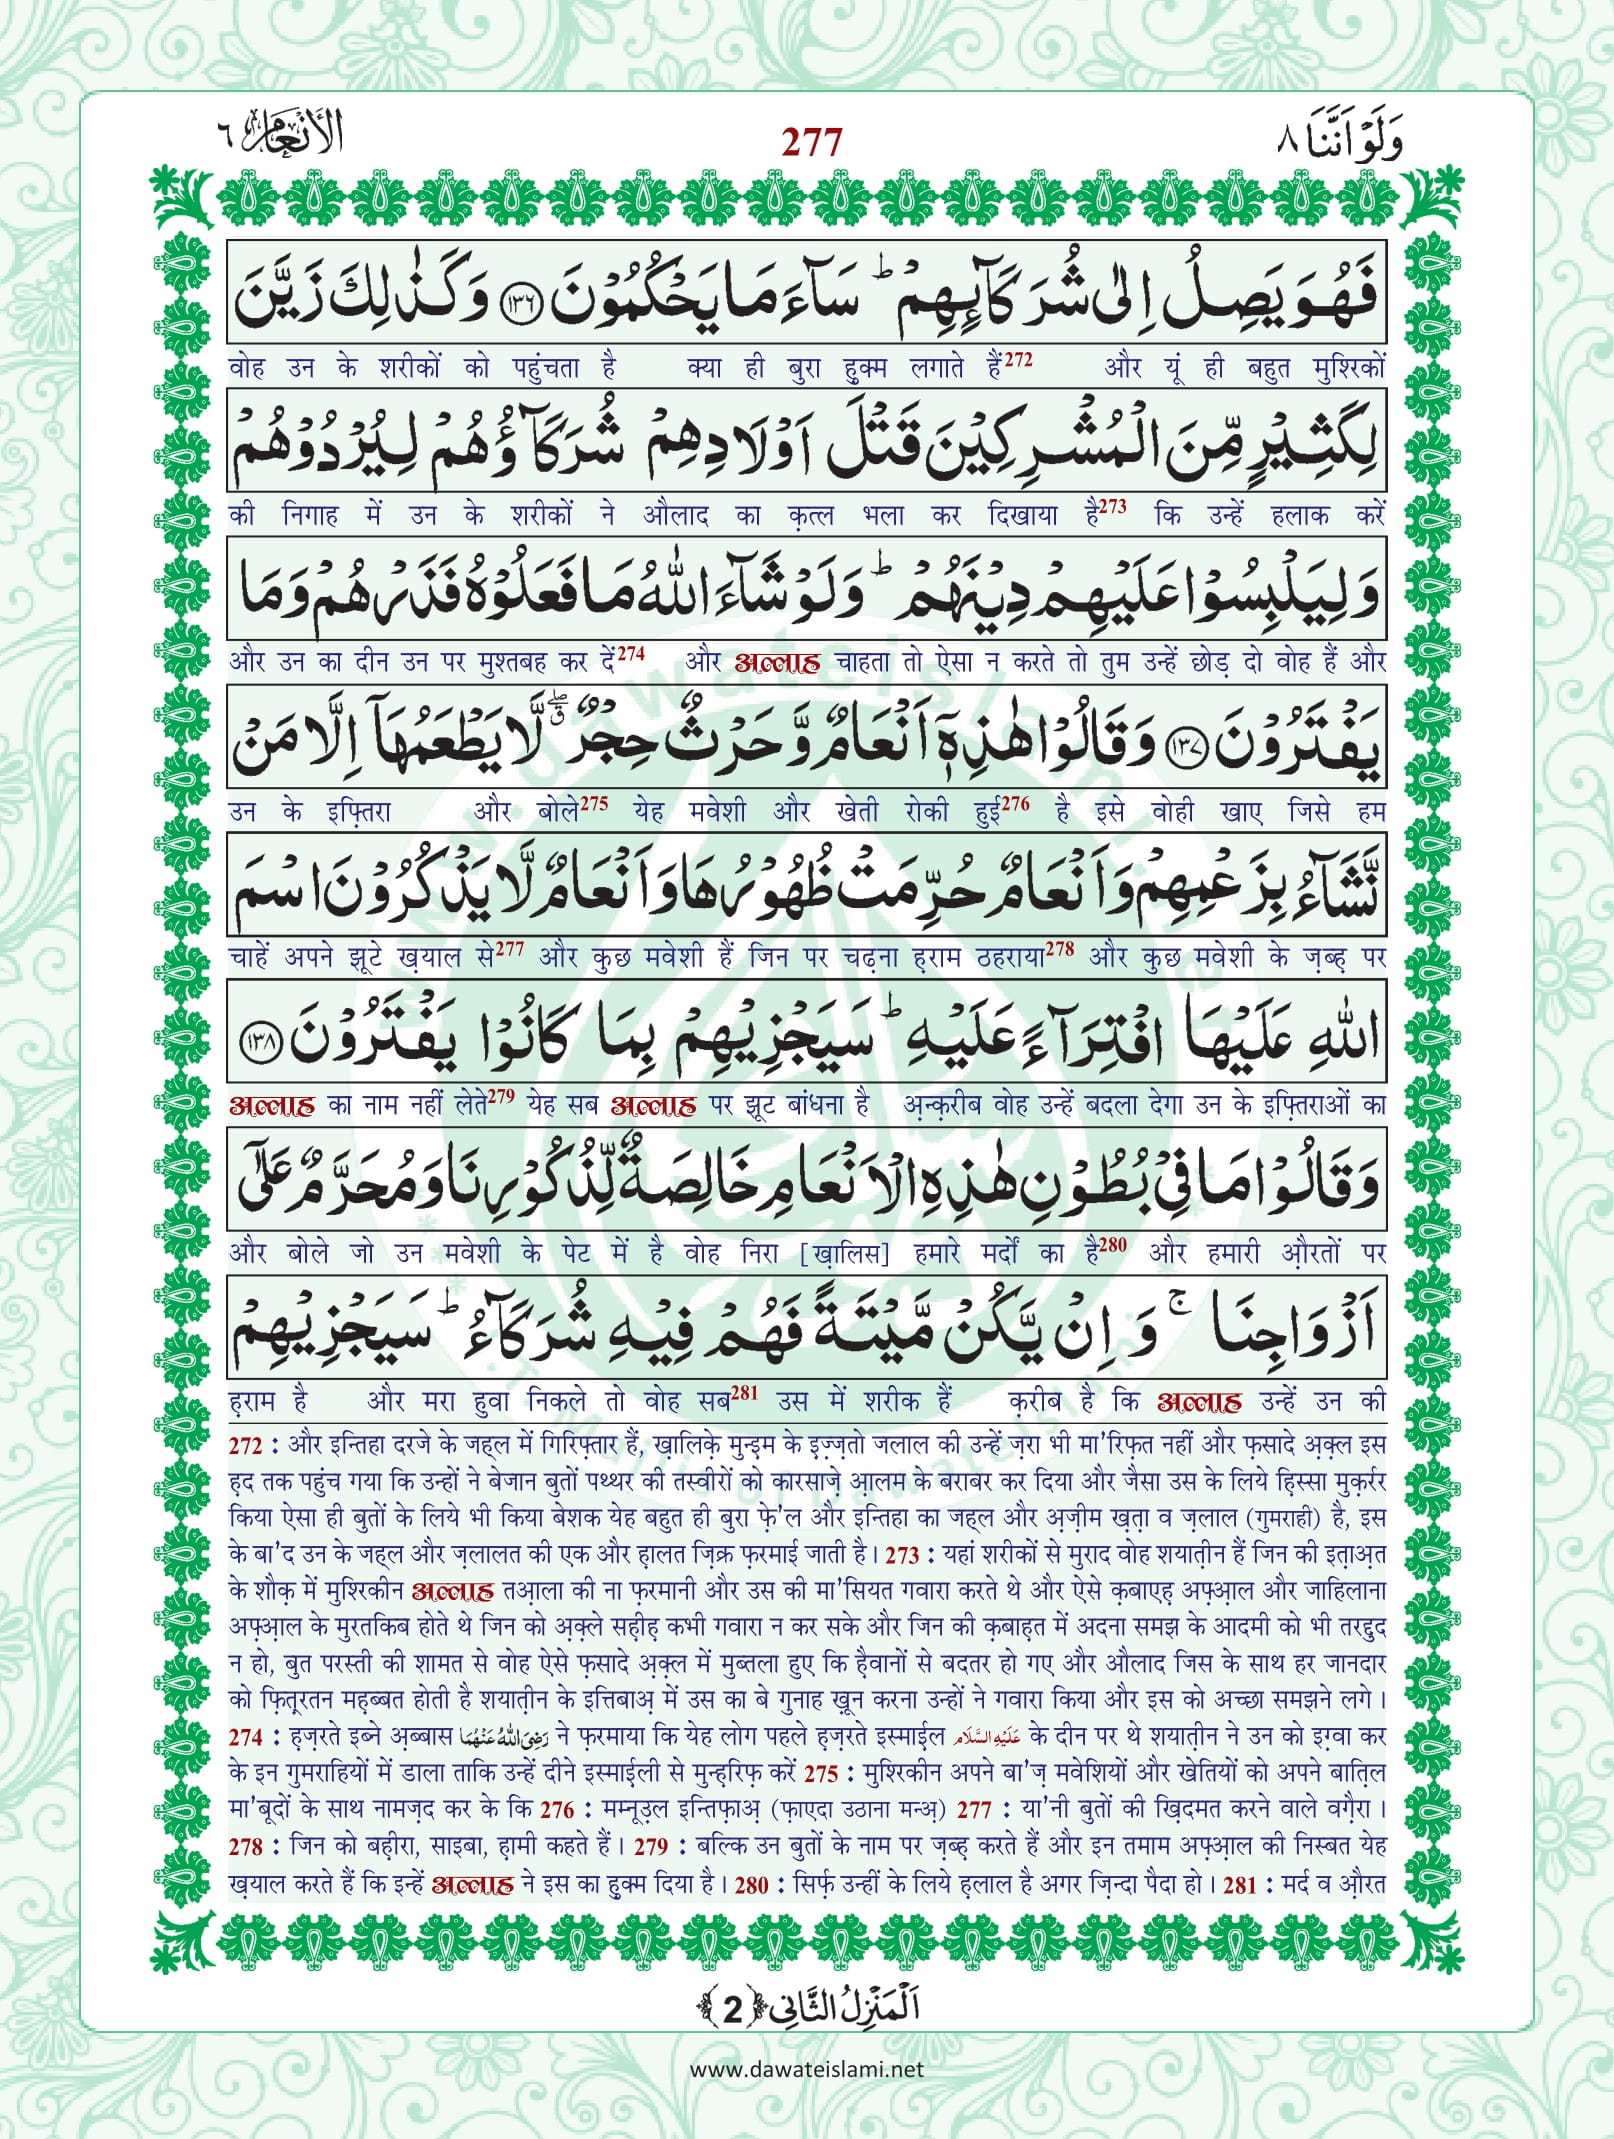 وَلَوْ اَنَّنَا ٨
277
الْاَنْعَام ٦
فَهُوَ يَصِلُ اِلٰى شُرَكَآىِٕهِمْ ؕ سَآءَ مَا يَحْكُمُوْنَ ﴿۱۳۶﴾ وَ كَذٰلِكَ زَيَّنَ
वोह उन के शरीकों को पहुंचता है क्या ही बुरा हुक्म लगाते हैं272 और यूं ही बहुत मुश्रिकों
لِكَثِيْرٍ مِّنَ الْمُشْرِكِيْنَ قَتْلَ اَوْلَادِهِمْ شُرَكَآؤُهُمْ لِيُرْدُوْهُمْ
की निगाह में उन के शरीकों ने औलाद का क़त्ल भला कर दिखाया है273 कि उन्हें हलाक करें
وَ لِيَلْبِسُوْا عَلَيْهِمْ دِيْنَهُمْ ؕ وَ لَوْ شَآءَ اللّٰهُ مَا فَعَلُوْهُ فَذَرْهُمْ وَ مَا
और उन का दीन उन पर मुश्तबह कर दें274 और अल्लाह चाहता तो ऐसा न करते तो तुम उन्हें छोड़ दो वोह हैं और
يَفْتَرُوْنَ ﴿۱۳۷﴾ وَ قَالُوْا هٰذِهٖۤ اَنْعَامٌ وَّ حَرْثٌ حِجْرٌ ۖۗ لَّا يَطْعَمُهَاۤ اِلَّا مَنْ
उन के इफ़्तिरा और बोले275 येह मवेशी और खेती रोकी हुई276 है इसे वोही खाए जिसे हम
نَّشَآءُ بِزَعْمِهِمْ وَ اَنْعَامٌ حُرِّمَتْ ظُهُوْرُهَا وَ اَنْعَامٌ لَّا يَذْكُرُوْنَ اسْمَ
चाहें अपने झूटे ख़याल से277 और कुछ मवेशी हैं जिन पर चढ़ना ह़राम ठहराया278 और कुछ मवेशी के ज़ब्ह़ पर
اللّٰهِ عَلَيْهَا افْتِرَآءً عَلَيْهِ ؕ سَيَجْزِيْهِمْ بِمَا كَانُوْا يَفْتَرُوْنَ ﴿۱۳۸﴾
अल्लाह का नाम नहीं लेते279 येह सब अल्लाह पर झूट बांधना है अ़न्क़रीब वोह उन्हें बदला देगा उन के इफ़्तिराओं का
وَ قَالُوْا مَا فِيْ بُطُوْنِ هٰذِهِ الْاَنْعَامِ خَالِصَةٌ لِّذُكُوْرِنَا وَ مُحَرَّمٌ عَلٰۤى
और बोले जो उन मवेशी के पेट में है वोह निरा [ख़ालिस] हमारे मर्दों का है280 और हमारी औ़रतों पर
اَزْوَاجِنَا ۚ وَ اِنْ يَّكُنْ مَّيْتَةً فَهُمْ فِيْهِ شُرَكَآءُ ؕ سَيَجْزِيْهِمْ
ह़राम है और मरा हुवा निकले तो वोह सब281 उस में शरीक हैं क़रीब है कि अल्लाह उन्हें उन की
272 : और इन्तिहा दरजे के जह्ल में गिरिफ़्तार हैं, ख़ालिक़े मुन्इ़म के इ़ज़्ज़तो जलाल की उन्हें ज़रा भी मा'रिफ़त नहीं और फ़सादे अ़क़्ल इस
ह़द तक पहुंच गया कि उन्हों ने बेजान बुतों पथ्थर की तस्वीरों को कारसाज़े आ़लम के बराबर कर दिया और जैसा उस के लिये हि़स्सा मुक़र्रर
किया ऐसा ही बुतों के लिये भी किया बेशक येह बहुत ही बुरा फ़े'ल और इन्तिहा का जह्ल और अ़ज़ीम ख़त़ा व ज़लाल (गुमराही) है, इस
के बा'द उन के जह्ल और ज़लालत की एक और ह़ालत ज़िक्र फ़रमाई जाती है। 273 : यहां शरीकों से मुराद वोह शयात़ीन हैं जिन की इत़ाअ़त
के शौक़ में मुश्रिकीन अल्लाह तआ़ला की ना फ़रमानी और उस की मा'सियत गवारा करते थे और ऐसे क़बाएह़ अफ़्आ़ल और जाहिलाना
अफ़्आ़ल के मुरतकिब होते थे जिन को अ़क़्ले सह़ीह़ कभी गवारा न कर सके और जिन की क़बाह़त में अदना समझ के आदमी को भी तरद्दुद
न हो, बुत परस्ती की शामत से वोह ऐसे फ़सादे अ़क़्ल में मुब्तला हुए कि ह़ैवानों से बदतर हो गए और औलाद जिस के साथ हर जानदार
को फ़ित़्रतन मह़ब्बत होती है शयात़ीन के इत्तिबाअ़ में उस का बे गुनाह ख़ून करना उन्हों ने गवारा किया और इस को अच्छा समझने लगे।
274 : ह़ज़रते इब्ने अ़ब्बास رَضِیَ اللّٰہُ عَنْہُمَا ने फ़रमाया कि येह लोग पहले ह़ज़रते इस्माई़ल عَلَیْہِ السَّلَام के दीन पर थे शयात़ीन ने उन को इग़्वा कर
के इन गुमराहियों में डाला ताकि उन्हें दीने इस्माई़ली से मुन्ह़रिफ़ करें 275 : मुश्रिकीन अपने बा'ज़ मवेशियों और खेतियों को अपने बात़िल
मा'बूदों के साथ नामज़द कर के कि 276 : मम्नूउ़ल इन्तिफ़ाअ़ (फ़ाएदा उठाना मन्अ़) 277 : या'नी बुतों की ख़िदमत करने वाले वग़ैरा।
278 : जिन को बह़ीरा, साइबा, ह़ामी कहते हैं। 279 : बल्कि उन बुतों के नाम पर ज़ब्ह़ करते हैं और इन तमाम अफ़्आ़ल की निस्बत येह
ख़याल करते हैं कि इन्हें अल्लाह ने इस का हुक्म दिया है। 280 : सिर्फ़ उन्हीं के लिये ह़लाल है अगर ज़िन्दा पैदा हो। 281 : मर्द व औ़रत
اَلْمَنْزِلُ الثَّانِی ﴿2﴾
www.dawateislami.net